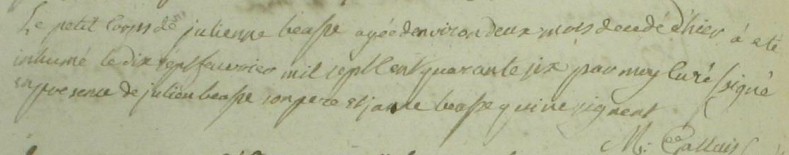 Le petit Corps de julienne beasse agée denviron deux mois decedé d'hier á eté
inhumé le dix sept feuvrier mil sept Cent quarante six par moy Curé signé
en presence de julien beasse son pere et janne beasse qui ne signent
M: Callais